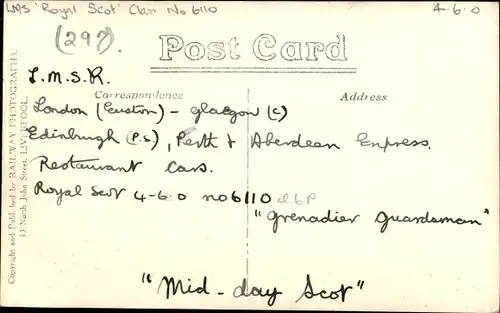 LMS 'Royal Scot' Class No 6110 4-6-0
(297).
Post Card
L.M.S.R.
Correspondence Address
London (Euston) - Glasgow (C)
Edinburgh (P.S), Perth & Aberdeen Express.
Restaurant Cars.
Royal Scot 4-6-0 no 6110
"Grenadier Guardsman"
"Mid-day Scot"
Copyright and Published by RAILWAY PHOTOGRAPHS,
13 North John Street, LIVERPOOL.